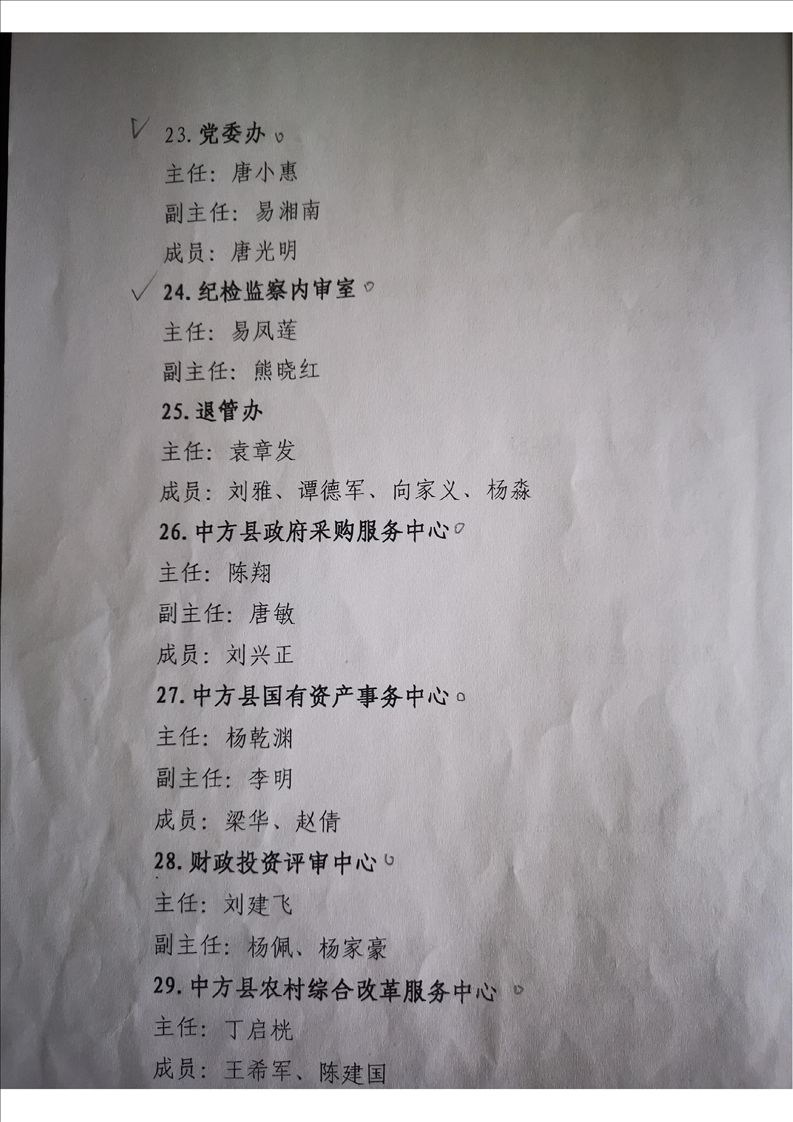 23.党委办
主任：唐小惠
副主任：易湘南
成员：唐光明
24.纪检监察内审室
主任：易凤莲
副主任：熊晓红
25.退管办
主任：袁章发
成员：刘雅、谭德军、向家义、杨淼
26.中方县政府采购服务中心
主任：陈翔
副主任：唐敏
成员：刘兴正
27.中方县国有资产事务中心
主任：杨乾渊
副主任：李明
成员：梁华、赵倩
28.财政投资评审中心
主任：刘建飞
副主任：杨佩、杨家豪
29.中方县农村综合改革服务中心
主任：丁启桄
成员：王希军、陈建国